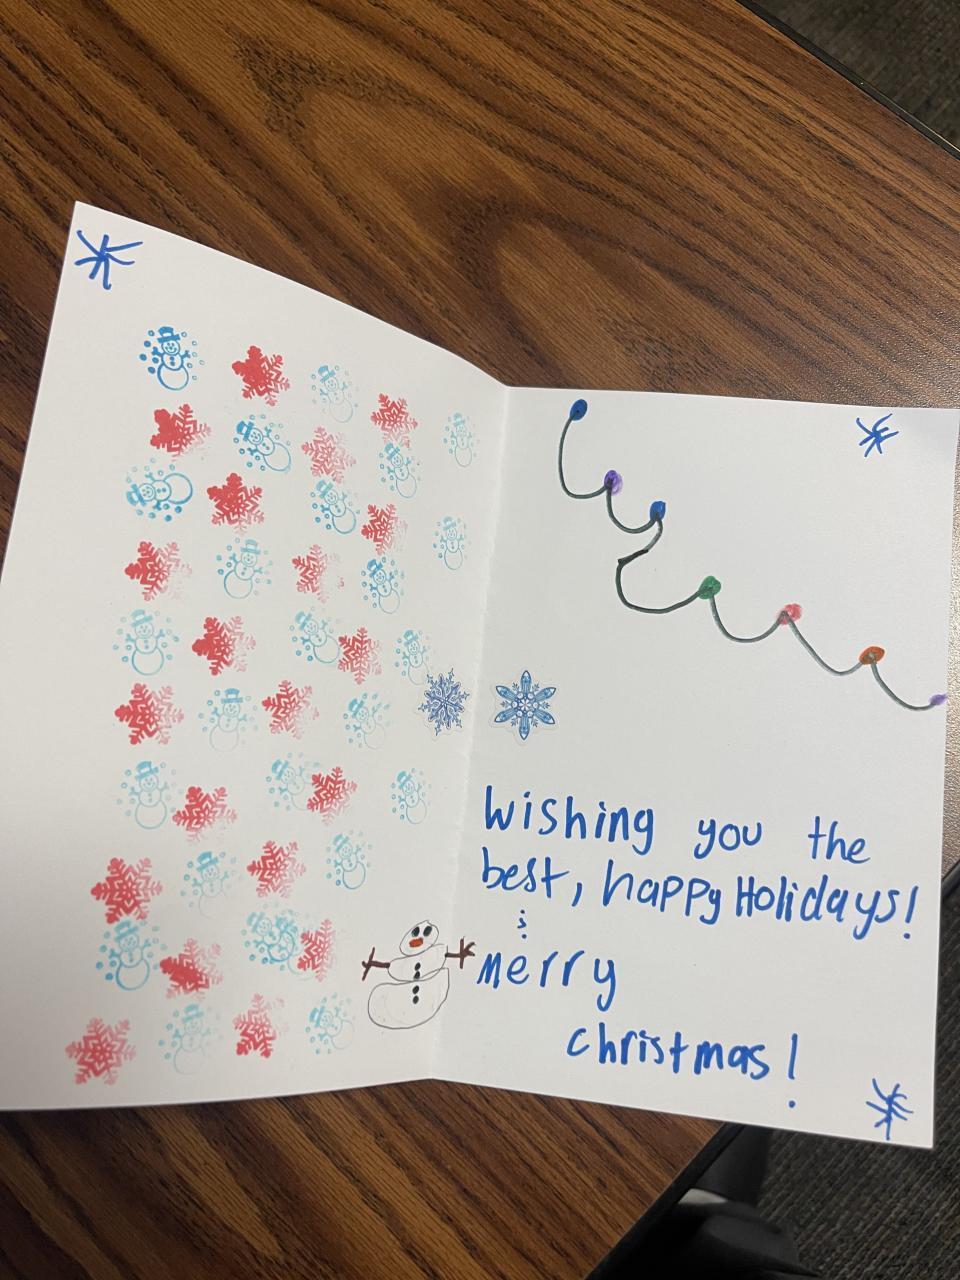 wishing you the
best, happy Holidays!
&
merry
christmas!